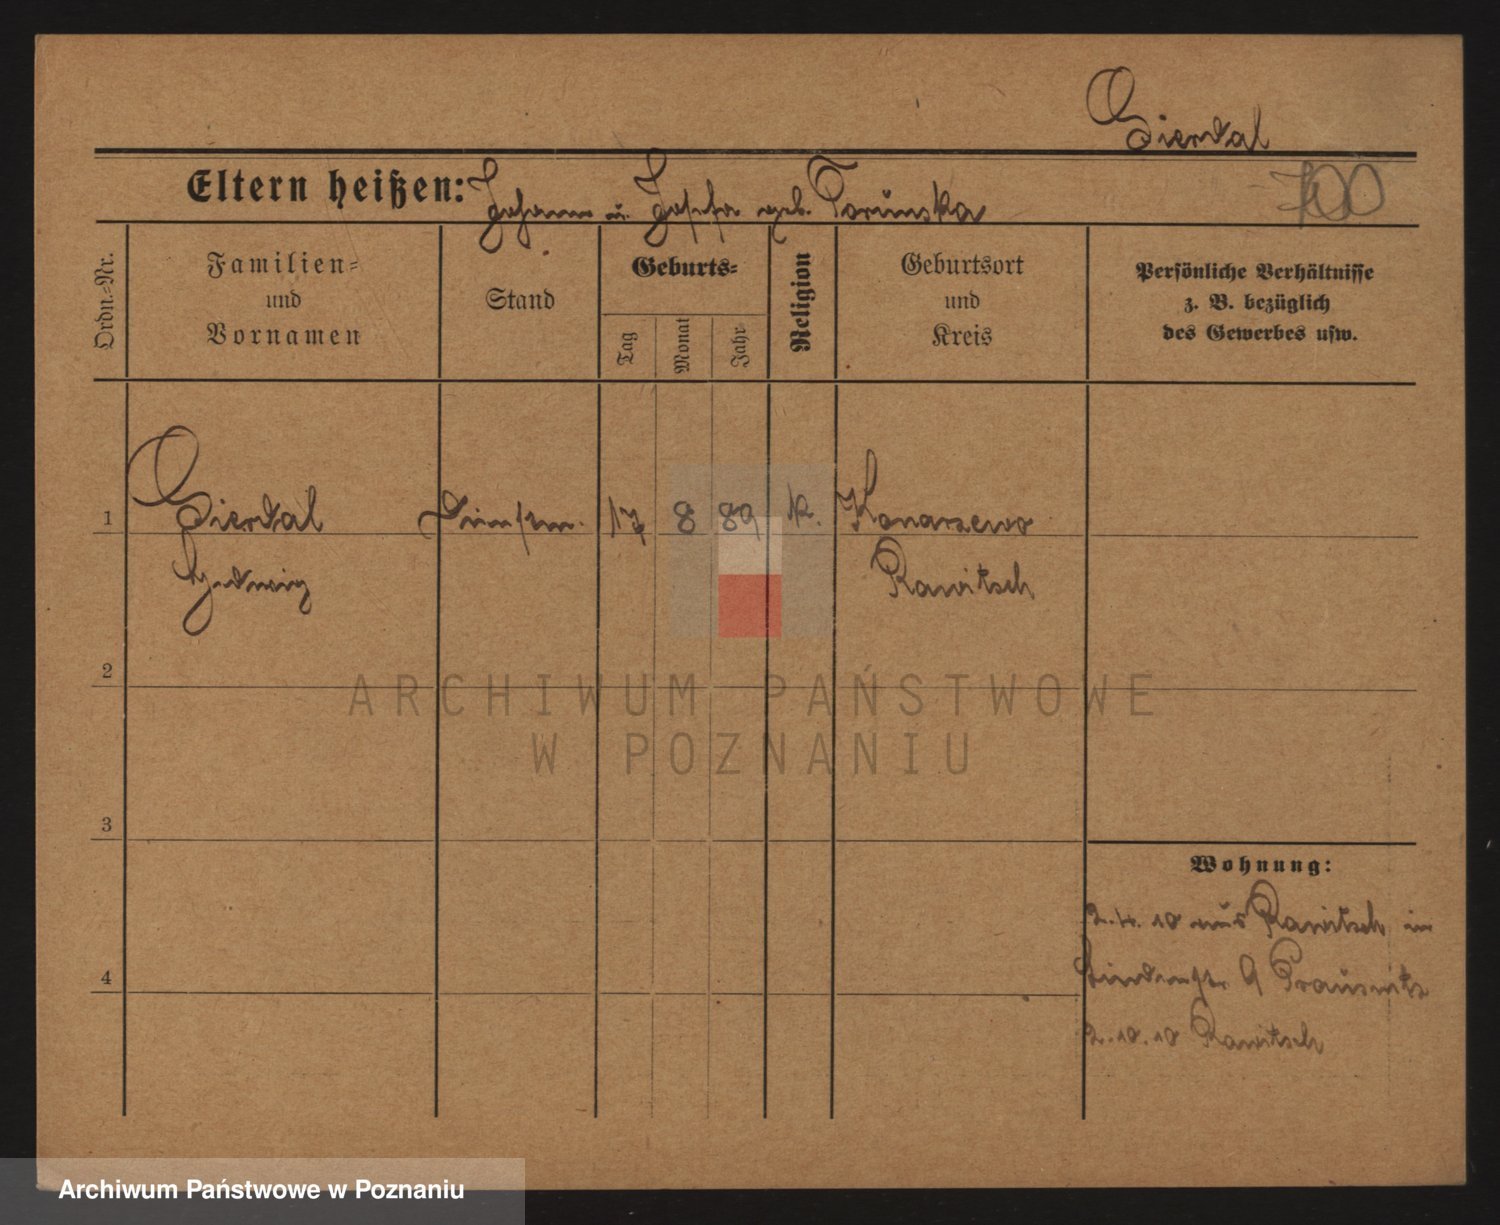 Gierdal
Eltern heißen: Johann u. Josefa geb. Toruńska
700
Ordn.-Nr.
Familien-
und
Vornamen
Stand
Geburts-
Tag
Monat
Jahr
Religion
Geburtsort
und
Kreis
Persönliche Verhältnisse
z. B. bezüglich
des Gewerbes usw.
1
Gierdal
17 8 89 k. Konarzewo
Hedwig
Rawitsch
2
ARCHIWUM PAŃSTWOWE
W POZNANIU
3
Wohnung:
2.4.10 aus Rawitsch in
9 Prausnitz
4
2.10.10 Rawitsch
Archiwum Państwowe w Poznaniu